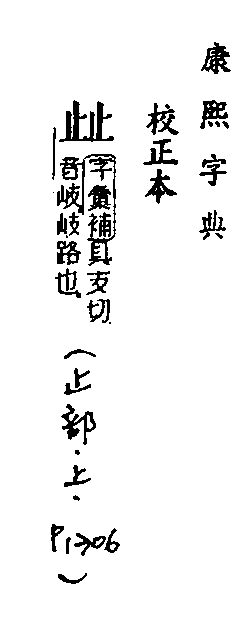 康熙字典
校正本
字彙補具支切
音岐岐路也
(止部.上.P1206)